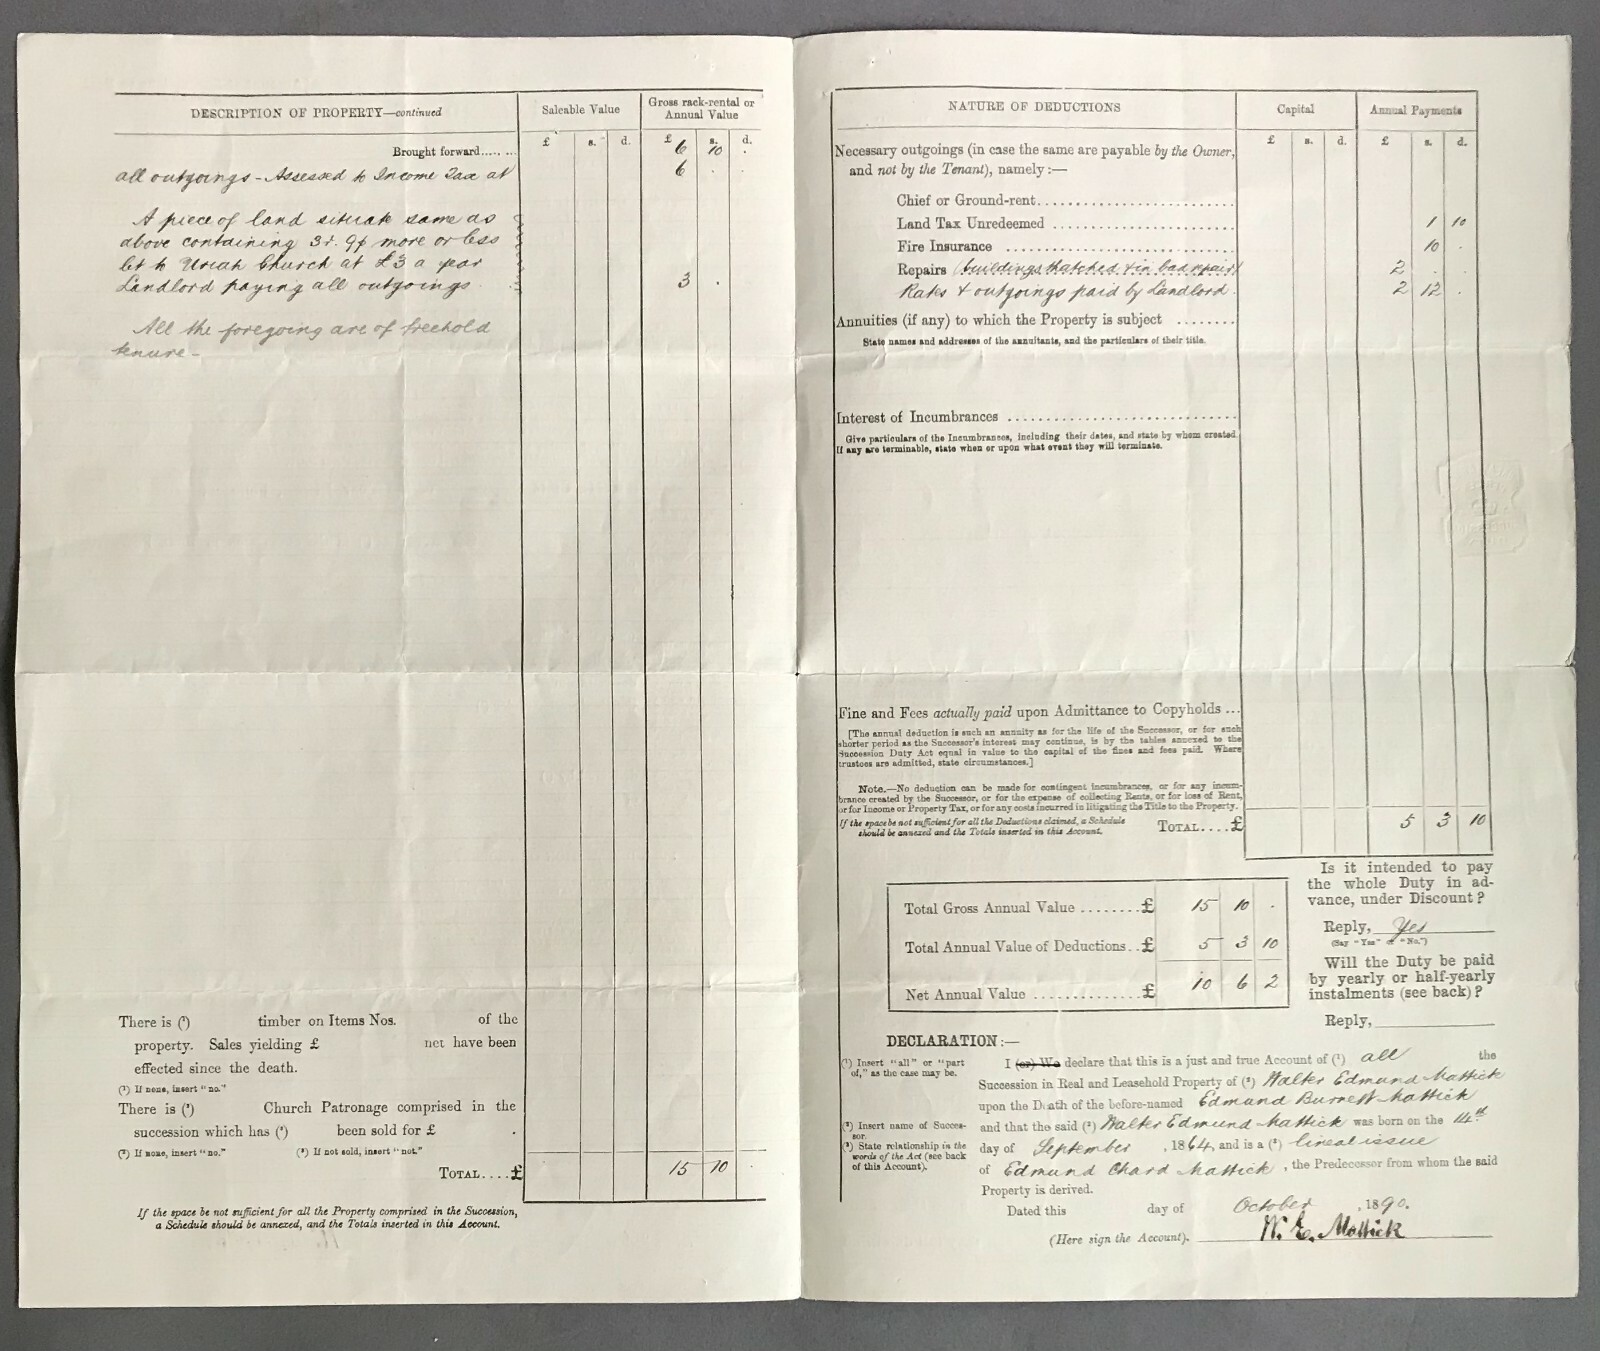 DESCRIPTION OF PROPERTY—continued
Saleable Value
Gross rack-rental or
Annual Value
£ s. d. £ s. d.
Brought forward........ 6 10 .
all outgoings - Assessed to Income Tax at 6 . .
A piece of land situate same as
above containing 3r. 9p more or less
let to Uriah Church at £3 a year
Landlord paying all outgoings 3 .
All the foregoing are of freehold
tenure -
There is (¹) timber on Items Nos. of the
property. Sales yielding £ net have been
effected since the death.
(¹) If none, insert "no."
There is (¹) Church Patronage comprised in the
succession which has (²) been sold for £ .
(¹) If none, insert "no." (²) If not sold, insert "not."
TOTAL....£ 15 10
If the space be not sufficient for all the Property comprised in the Succession,
a Schedule should be annexed, and the Totals inserted in this Account.
NATURE OF DEDUCTIONS
Capital
Annual Payments
£ s. d. £ s. d.
Necessary outgoings (in case the same are payable by the Owner,
and not by the Tenant), namely:—
Chief or Ground-rent
Land Tax Unredeemed 1 10
Fire Insurance 10 .
Repairs (buildings thatched & in bad repair) 2 . .
Rates & outgoings paid by Landlord. 2 12 .
Annuities (if any) to which the Property is subject ........
State names and addresses of the annuitants, and the particulars of their title.
Interest of Incumbrances
Give particulars of the Incumbrances, including their dates, and state by whom created.
If any are terminable, state when or upon what event they will terminate.
Fine and Fees actually paid upon Admittance to Copyholds ...
[The annual deduction is such an annuity as for the life of the Successor, or for such
shorter period as the Successor's interest may continue, is by the tables annexed to the
Succession Duty Act equal in value to the capital of the fines and fees paid. Where
trustees are admitted, state circumstances.]
NOTE.—No deduction can be made for contingent incumbrances, or for any incum-
brance created by the Successor, or for the expense of collecting Rents, or for loss of Rent,
or for Income or Property Tax, or for any costs incurred in litigating the Title to the Property.
If the space be not sufficient for all the Deductions claimed, a Schedule
should be annexed and the Totals inserted in this Account.
TOTAL....£ 5 3 10
Total Gross Annual Value ........£ 15 10 .
Total Annual Value of Deductions..£ 5 3 10
Net Annual Value ..............£ 10 6 2
Is it intended to pay
the whole Duty in ad-
vance, under Discount?
Reply, Yes
(Say "Yes" or "No.")
Will the Duty be paid
by yearly or half-yearly
instalments (see back)?
Reply,
DECLARATION:—
(¹) Insert "all" or "part
of," as the case may be.
(²) Insert name of Succes-
sor.
(³) State relationship in the
words of the Act (see back
of this Account).
I (or) We declare that this is a just and true Account of (¹) all the
Succession in Real and Leasehold Property of (²) Walter Edmund Mattick
upon the Death of the before-named Edmund Burnett Mattick
and that the said (²) Walter Edmund Mattick was born on the 14th
day of September, 1864, and is a (³) lineal issue
of Edmund Chard Mattick, the Predecessor from whom the said
Property is derived.
Dated this day of October, 1890.
(Here sign the Account). W. E. Mattick